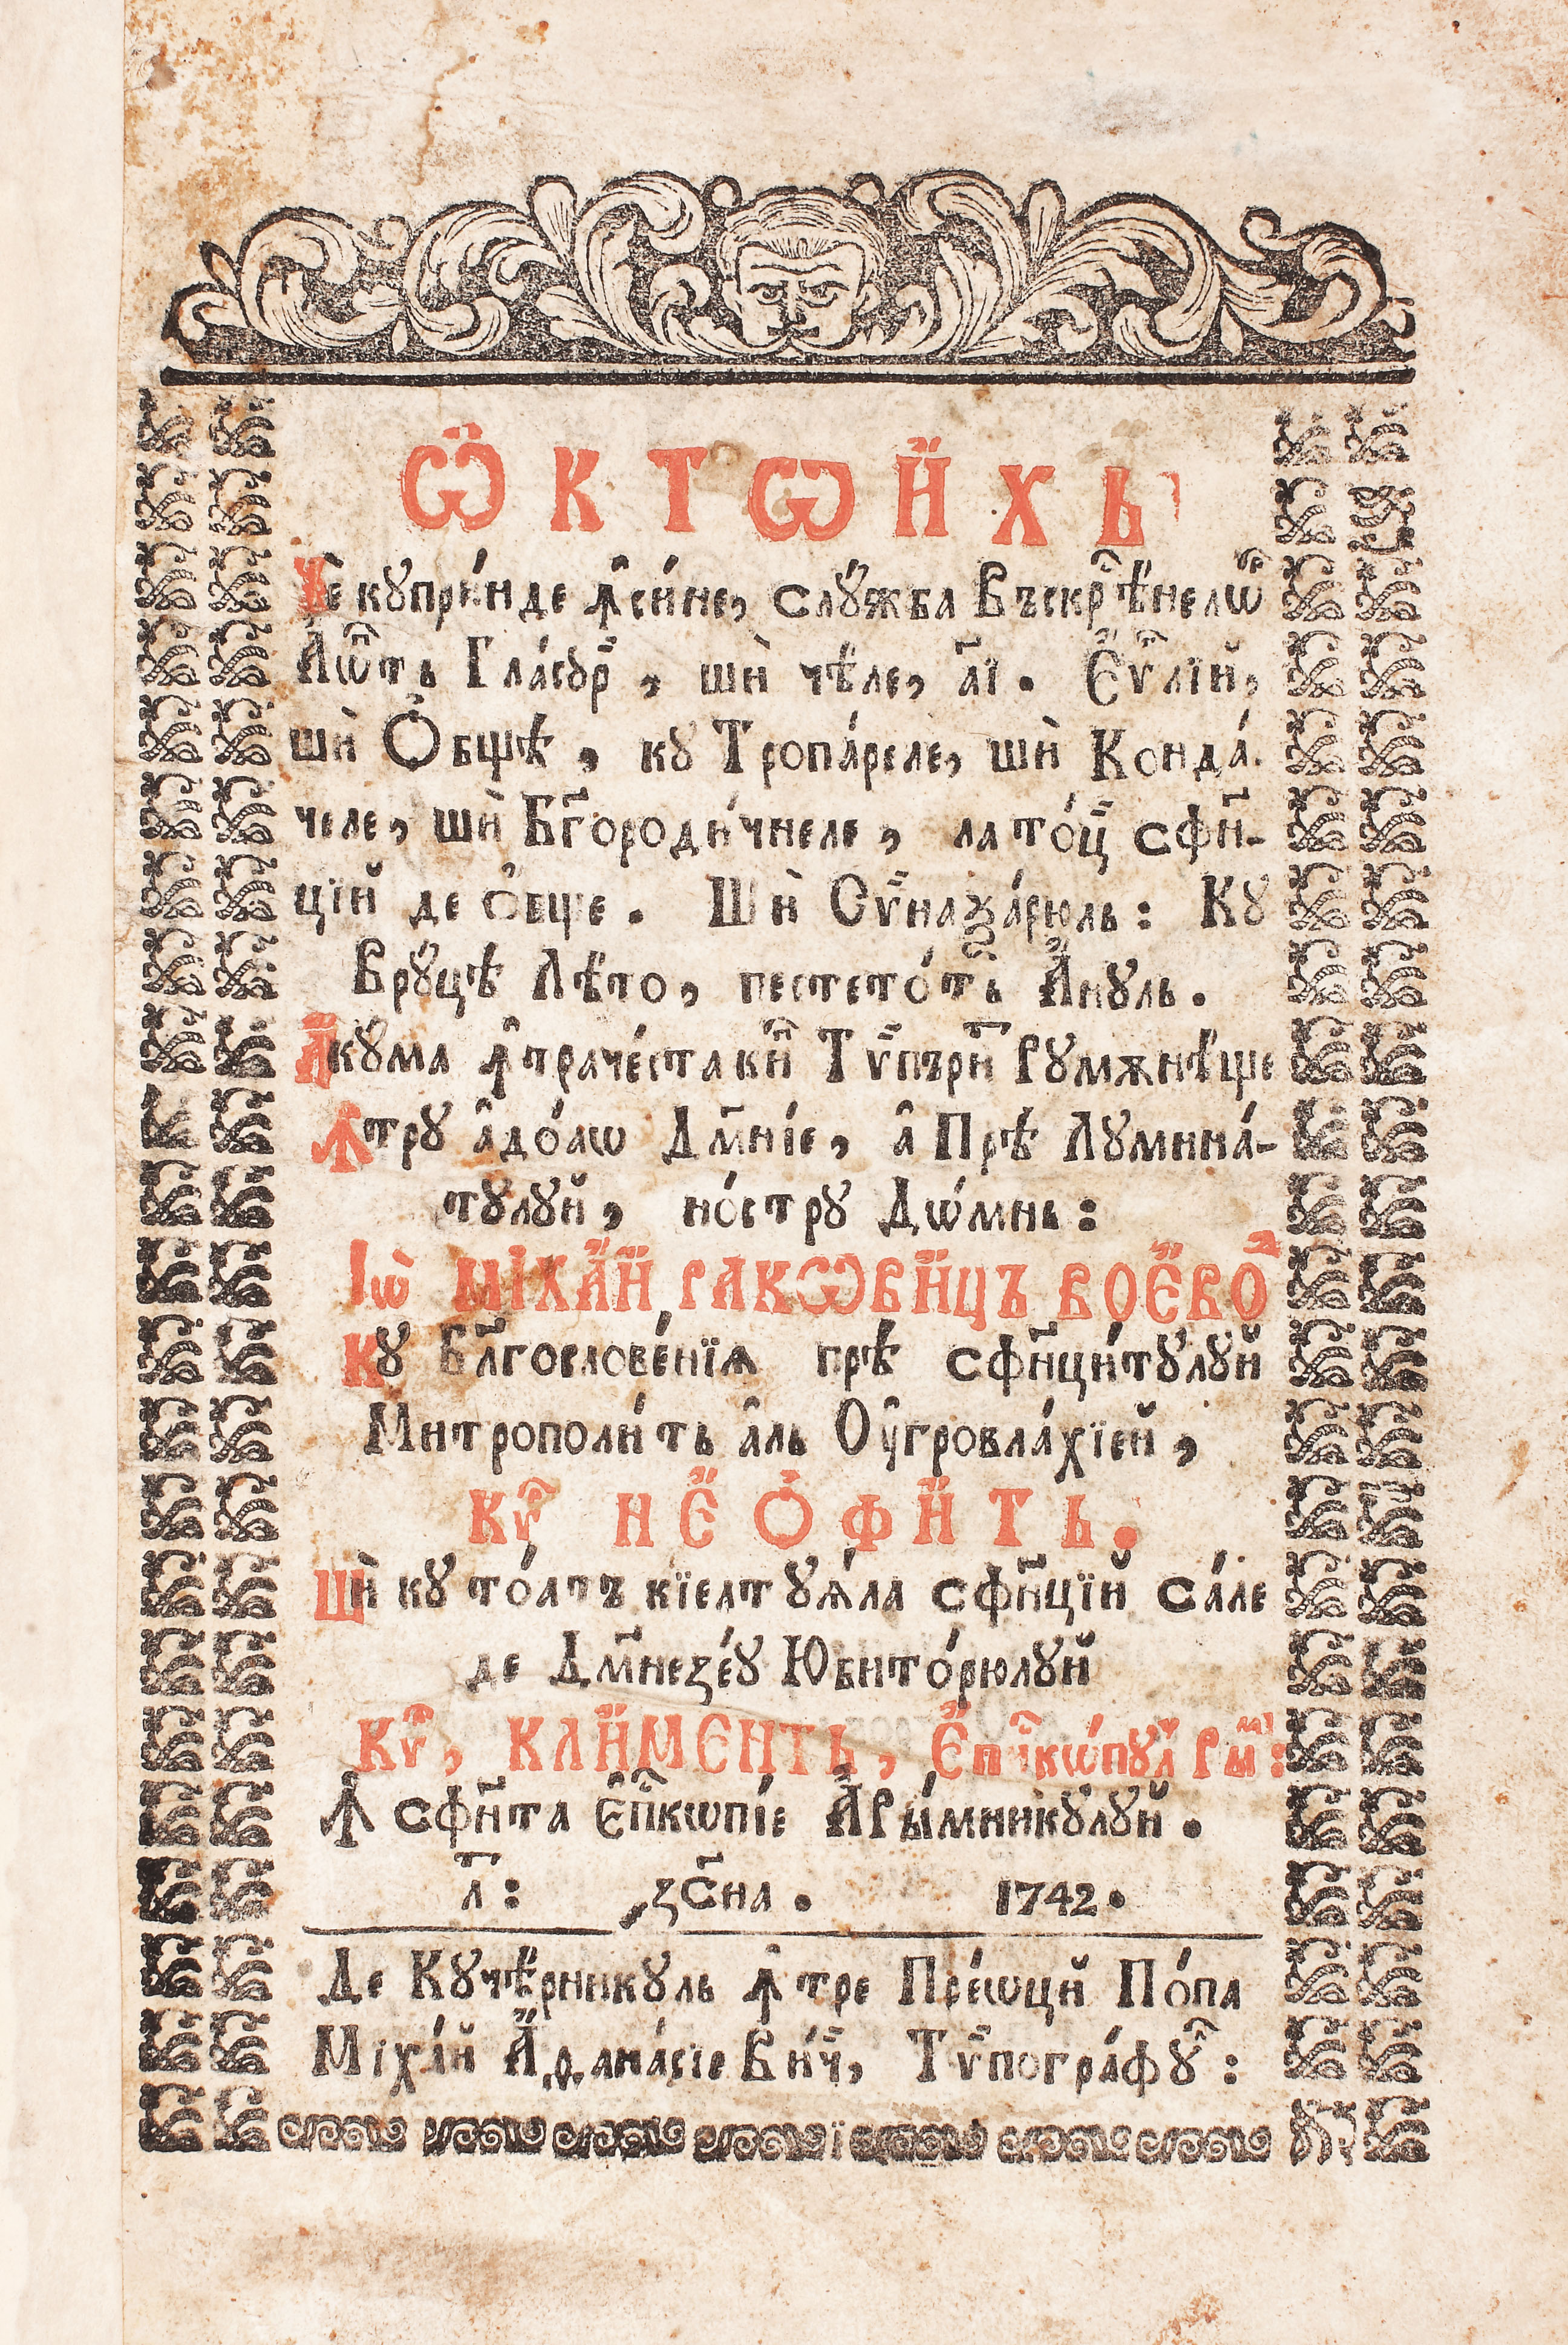 Ѽ К Т Ѡ И҆́ Х Ь
Че кꙋпри́нде ꙟ̂си́не, слꙋ́жба Въскр̑ѣ́нелѡр̑
Лѡ҃ть Гла́сꙋр̾, шѝ чѣ́ле, а҃ї. Є҆́ѵ҃лїй,
шѝ Ѻ҆бщѣ́, кꙋ Тропа́реле, шѝ Конда́
челе, шѝ Бг҃ороди́чнеле, ла то́ц̾ сфн҃-
цїй де ѻ҆бще. Шѝ Сѵ̾наѯа́рюль: Кꙋ
Врꙋ́цѣ Лѣ́то, песте то́ть А҆́нꙋль.
А҆́кꙋ́ма ꙟ̂траче́ста ки́п̑ Тѵ̾пъри҃ Рꙋмѫнѣ́ще
Ꙟ̂трꙋ а̂до́аѡ Дм҃ні́е, а̂ Прѣ́ Лꙋмина́-
тꙋлꙋй, но́стрꙋ Дѡ́мнь:
Іѡ̀ МІХА҆́И҆́ РАКѠВИ҆́ЦЪ ВОЄ҆́ВО̑Д
Кꙋ бл҃гослове́нїѧ прѣ́ сфн҃ци́тꙋлꙋй
Митрополи́ть а̂ль Оу̂гровла́хїей,
Кѵ̑р Н Є҆́ Ѻ҆ Ф И҆́ Т Ь.
Шѝ кꙋ то́атъ кїелтꙋѧ́ла сфн҃цїй са́ле
де Дм҃незе́ꙋ Юбито́рюлꙋй
Кѵ̑р, КЛИ҆́МЄНТЬ, Є҆́пі̑кѡ́пꙋл Ры̑м:
Ꙟ̂ сфн҃та є̂пі̑кѡпі́е А҆́Ры́мникꙋ́лꙋй.
л҃т: ҂зс҃на. 1742.
Де Кꙋчѣ́рникꙋль ꙟ̂тре Пре́ѡцй По́па
Міха́й А҆́ѳана́сїе Ви́ч̾, Тѵ̾погра́фꙋ̑л: